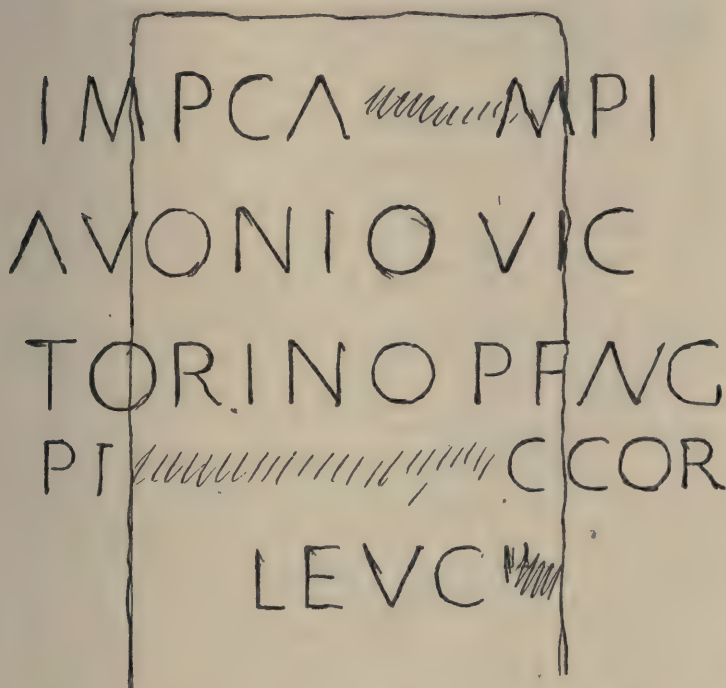 IMPCA MPI
AVONIO VIC
TORINO PFAVG
PT CCOR
LEVC